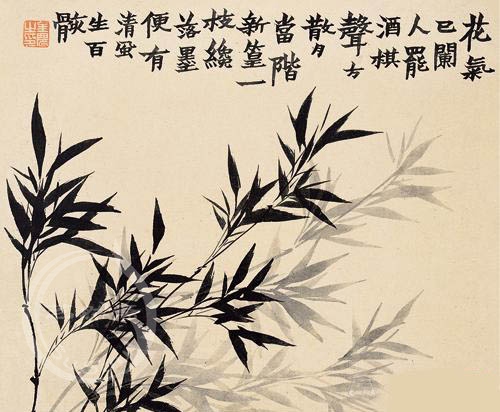 花氣
已闌
人罷
酒棋
聲方
散月
當階
新篁一
枝纔
落墨
便有
清風
生百
骸